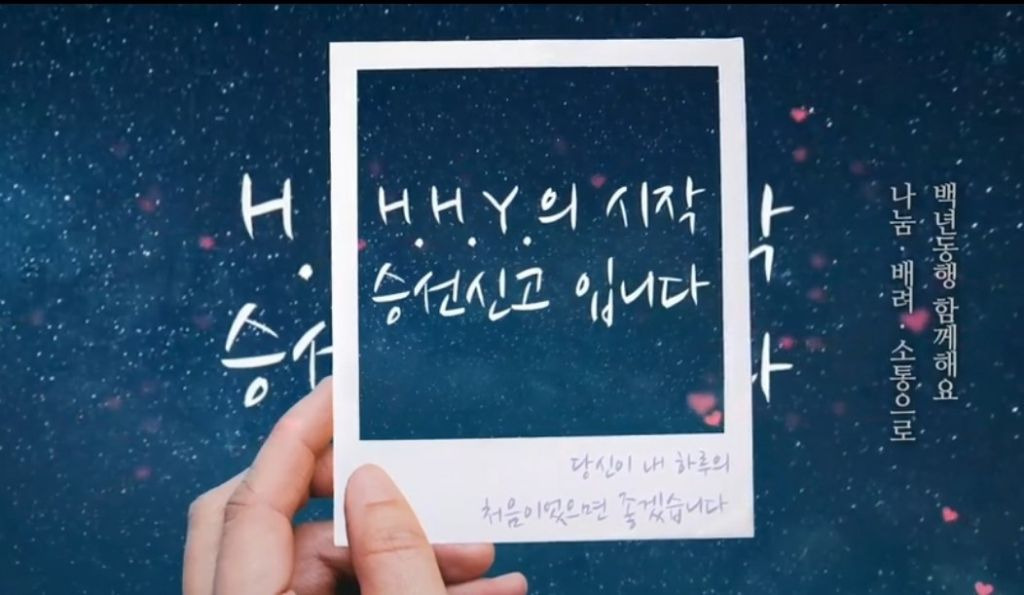 H.H.Y.의 시작
승선신고 입니다
당신이 내 하루의
처음이었으면 좋겠습니다
H.
승
백년동행 함께해요
나눔·배려·소통으로